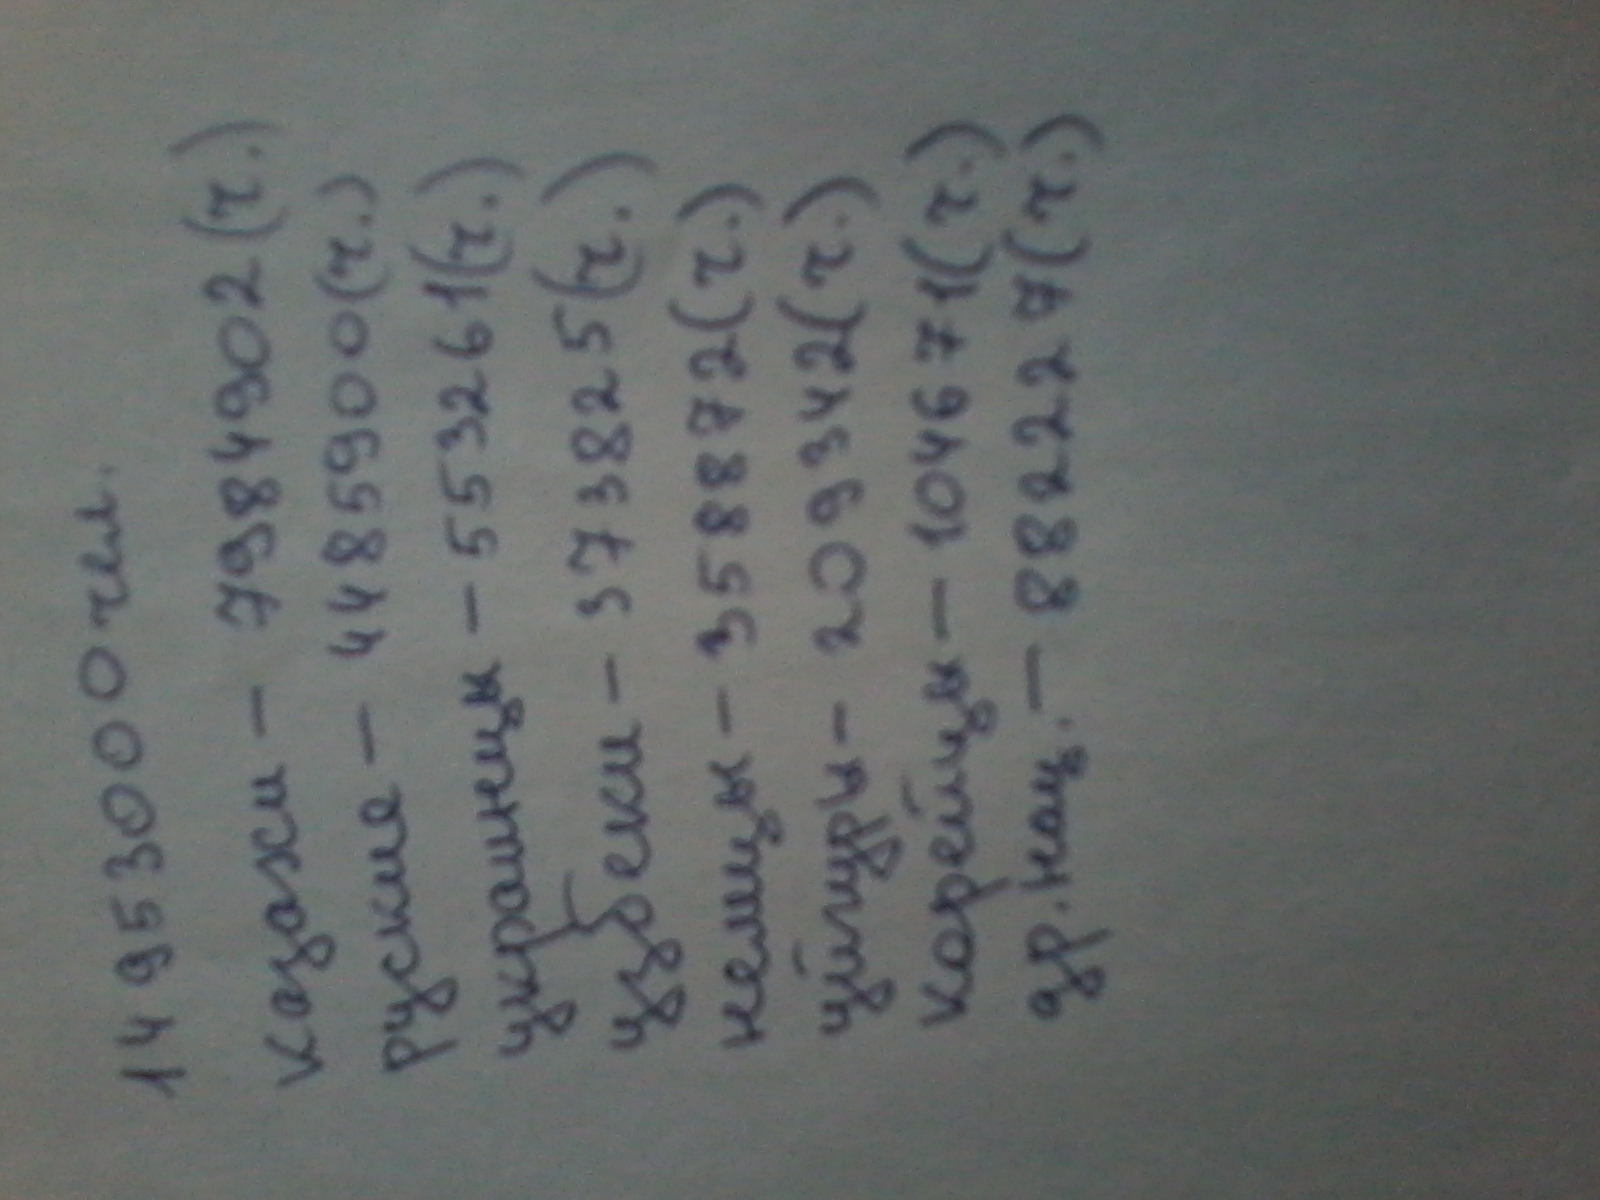 14953000 чел.
казахи - 7984902 (ч.)
руские - 4485900 (ч.)
украинцы - 553261 (ч.)
узбеки - 373825 (ч.)
немцы - 358872 (ч.)
уйгуры - 209342 (ч.)
корейцы - 104671 (ч.)
др. нац. - 882227 (ч.)